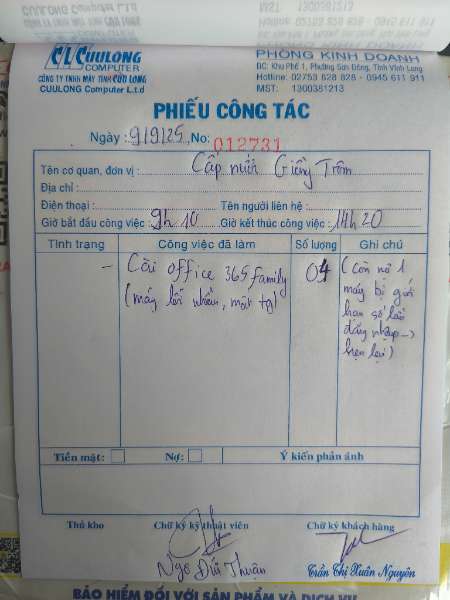 CUULONG Computer L.t.d
Hotline: 02753 828 828 - 0945 611 911
MST: 1300381213
CL CUULONG
COMPUTER
CÔNG TY TNHH MÁY TÍNH CỬU LONG
CUULONG Computer L.t.d
PHÒNG KINH DOANH
ĐC: Khu Phố 1, Phường Sơn Đông, Tỉnh Vĩnh Long
Hotline: 02753 828 828 - 0945 611 911
MST: 1300381213
PHIẾU CÔNG TÁC
Ngày: 9/9/25 No: 012731
Tên cơ quan, đơn vị: Cấp nước Giồng Trôm
Địa chỉ:
Điện thoại: Tên người liên hệ:
Giờ bắt đầu công việc: 9h10 Giờ kết thúc công việc: 14h20
Tình trạng Công việc đã làm Số lượng Ghi chú
- Cài office 365 family 04 (Còn nợ 1
(máy lỗi nhiều, mất tg) máy bị giới
hạn số lần
đăng nhập ->
hẹn lại)
Tiền mặt: Nợ: Ý kiến phản ánh
Thủ kho Chữ ký kỹ thuật viên Chữ ký khách hàng
Ngô Đức Thuân Trần Thị Xuân Nguyên
BẢO HIỂM ĐỐI VỚI SẢN PHẨM VÀ DỊCH VỤ